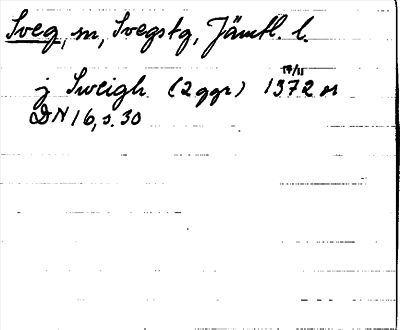 Sveg, sn, Svegs tg, Jämtl. l.
17/11
j Sweigh (2 ggr) 1372 or
DN 16, s. 30